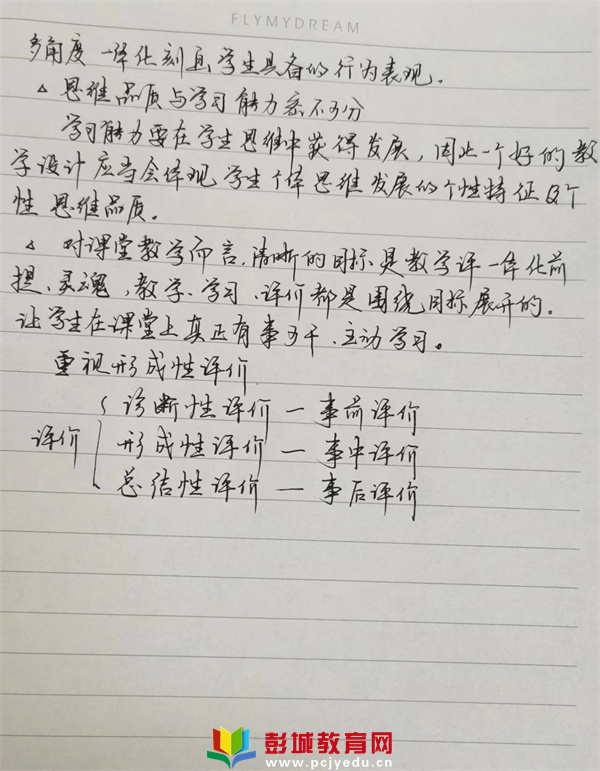 FLYMYDREAM
多角度一体化刻画学生具备的行为表现。
△ 思维品质与学习能力密不可分
学习能力要在学生思维中获得发展，因此一个好的教
学设计应当会体现学生个体思维发展的个性特征及个
性思维品质。
△ 对课堂教学而言，清晰的目标是教学评一体化前
提、灵魂，教学、学习、评价都是围绕目标展开的。
让学生在课堂上真正有事可干、主动学习。
重视形成性评价
诊断性评价 — 事前评价
评价 形成性评价 — 事中评价
总结性评价 — 事后评价
彭城教育网
www.pcjyedu.cn